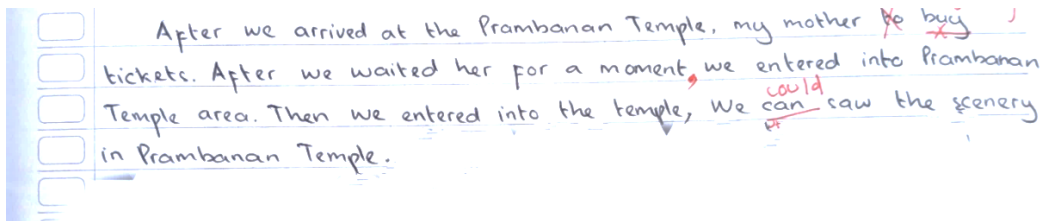 After we arrived at the Prambanan Temple, my mother to buy
tickets. After we waited her for a moment, we entered into Prambanan
could
Temple area. Then we entered into the temple, we can saw the scenery
in Prambanan Temple.